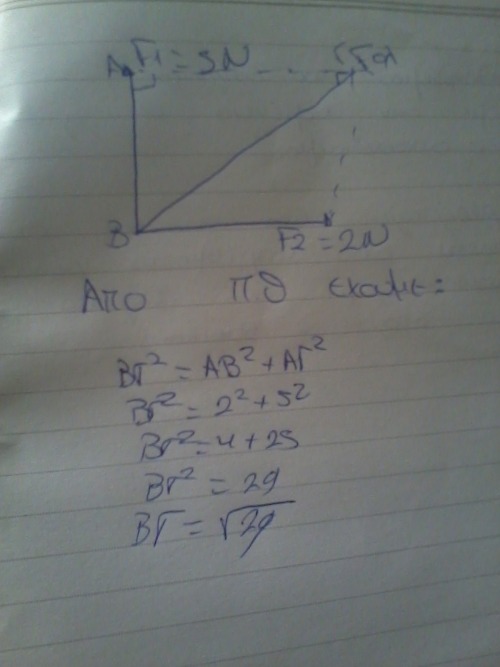 A F1 = 5N Γ Fολ
B
F2 = 2N
Απο ΠΘ έχουμε:
ΒΓ² = ΑΒ² + ΑΓ²
ΒΓ² = 2² + 5²
ΒΓ² = 4 + 25
ΒΓ² = 29
ΒΓ = √29